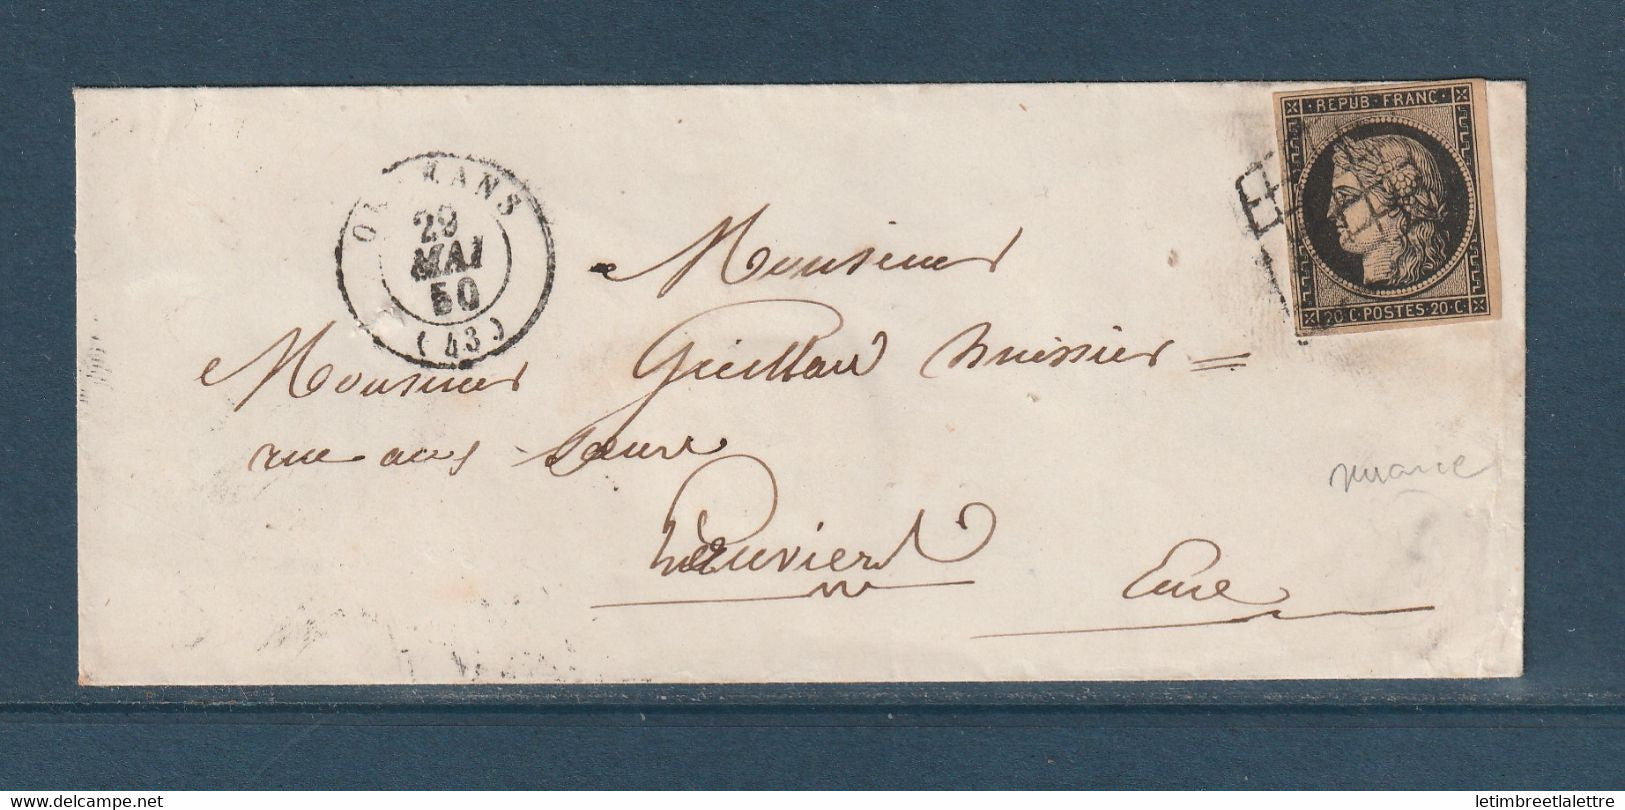 REPUB·FRANC·
20 C·POSTES·20·C·
ORLEANS
29
MAI
50
(43)
Monsieur
Monsieur huissier =
rue aux
Louviers
Eure
nuance
delcampe.net
letimbreetlalettre